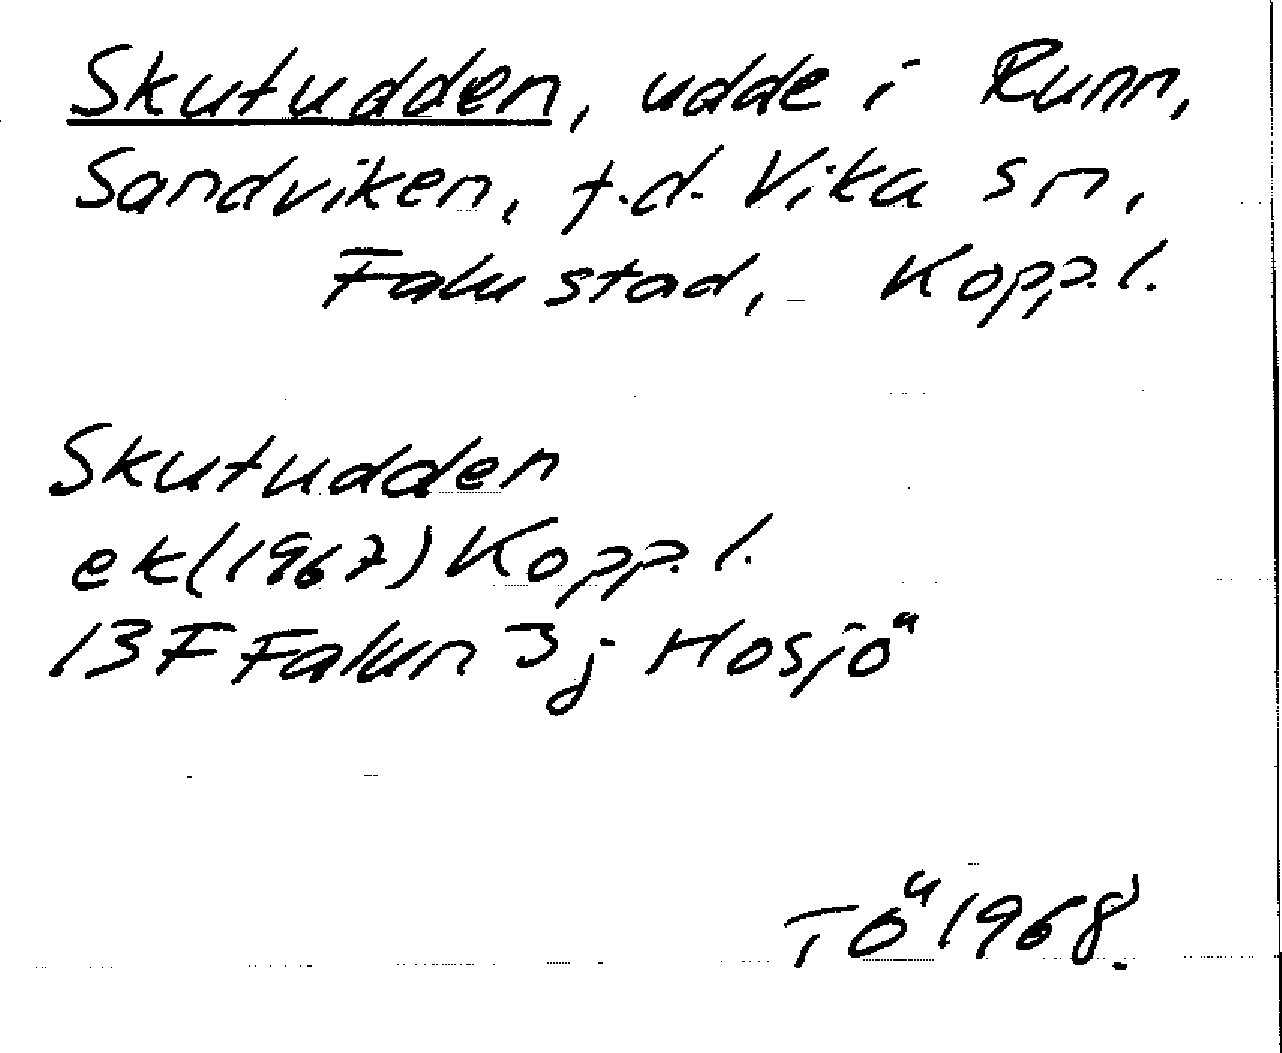 Skutudden, udde i Runn,
Sandviken, f.d. Vika sn,
Falu stad, Kopp.l.
Skutudden
ek(1967) Kopp.l.
13F Falun 3j Hosjö
TÖ 1968.